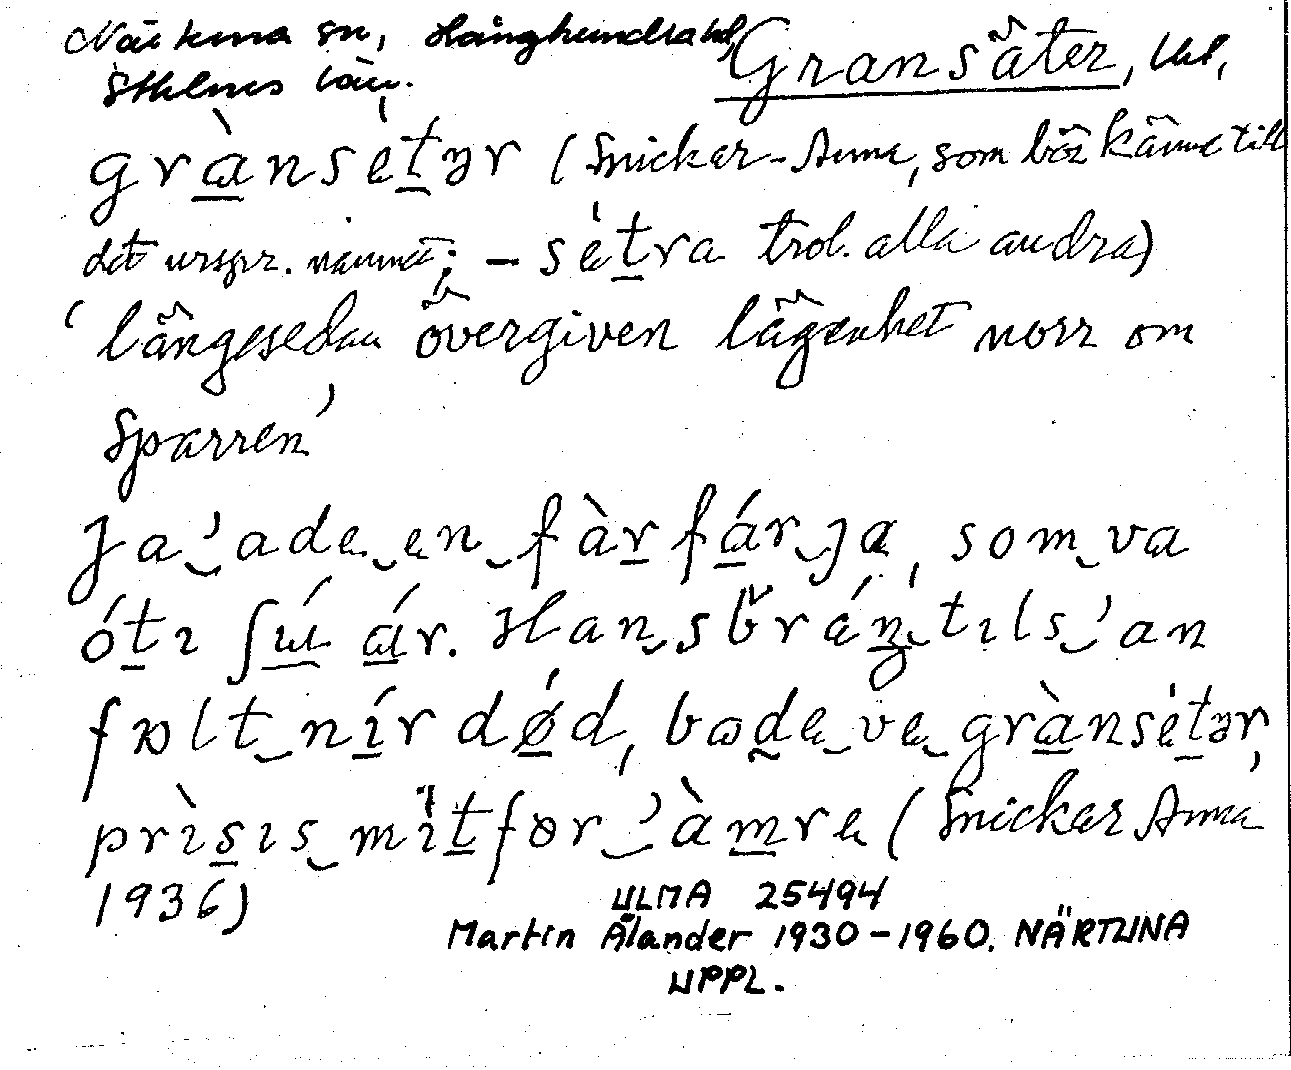 Närtuna sn, Långhundra hd, Gransäter, lht,
Sthlms län.
grànsétər (Snickar-Anna, som bör känna till
det urspr. namnet; – sétra trol. alla andra)
'längesedan övergiven lägenhet norr om
Sparren'
Ja ade en fàrfárja, som va
óti ʃú ár. Han sbrán tils an
fɒlt nír dǿd, bade ve grànsétər,
prìsis mìt for àmre (Snickar Anna
1936)
ULMA 25494
Martin Ålander 1930–1960. NÄRTUNA
UPPL.